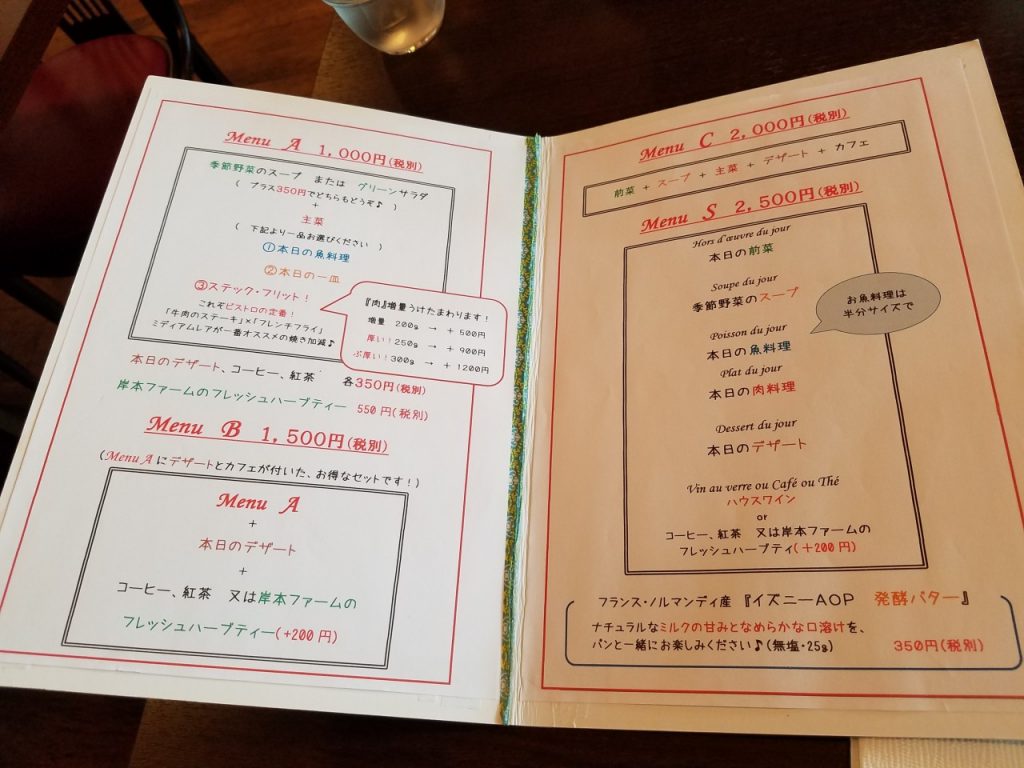 Menu A 1,000円(税別)
季節野菜のスープ または グリーンサラダ
( プラス350円でどちらもどうぞ♪ )
+
主菜
( 下記より一品お選びください )
①本日の魚料理
②本日の一皿
③ステック・フリット!
これぞビストロの定番!
「牛肉のステーキ」×「フレンチフライ」
ミディアムレアが一番オススメの焼き加減♪
『肉』増量うけたまわります!
増量 200g → + 500円
厚い!250g → + 900円
ぶ厚い!300g → + 1200円
本日のデザート、コーヒー、紅茶 各350円(税別)
岸本ファームのフレッシュハーブティー 550円(税別)
Menu B 1,500円(税別)
(Menu Aにデザートとカフェが付いた、お得なセットです!)
Menu A
+
本日のデザート
+
コーヒー、紅茶 又は岸本ファームの
フレッシュハーブティー(+200円)
Menu C 2,000円(税別)
前菜 + スープ + 主菜 + デザート + カフェ
Menu S 2,500円(税別)
Hors d'œuvre du jour
本日の前菜
Soupe du jour
季節野菜のスープ
お魚料理は
半分サイズで
Poisson du jour
本日の魚料理
Plat du jour
本日の肉料理
Dessert du jour
本日のデザート
Vin au verre ou Café ou Thé
ハウスワイン
or
コーヒー、紅茶 又は岸本ファームの
フレッシュハーブティ(+200円)
フランス・ノルマンディ産 『イズニーAOP 発酵バター』
ナチュラルなミルクの甘みとなめらかな口溶けを、
パンと一緒にお楽しみください♪(無塩・25g) 350円(税別)